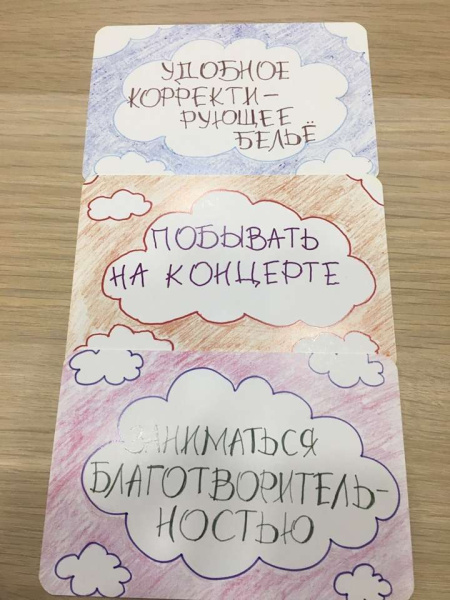 УДОБНОЕ
КОРРЕКТИ-
РУЮЩЕЕ
БЕЛЬЁ
ПОБЫВАТЬ
НА КОНЦЕРТЕ
ЗАНИМАТЬСЯ
БЛАГОТВОРИТЕЛЬ-
НОСТЬЮ